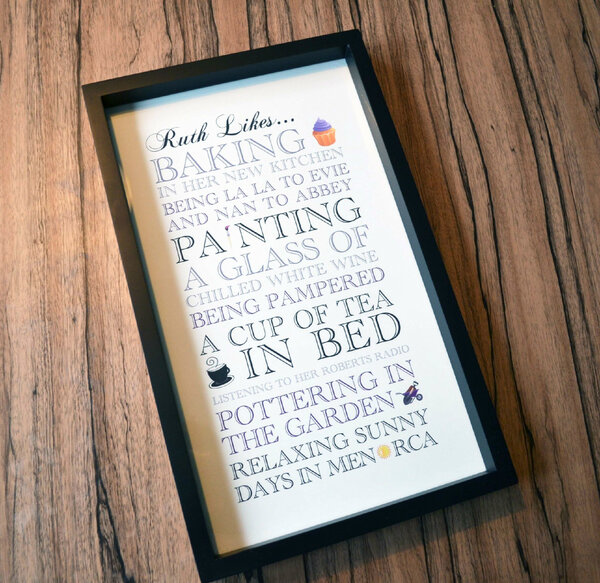 Ruth Likes...
BAKING
IN HER NEW KITCHEN
BEING LA LA TO EVIE
AND NAN TO ABBEY
PAINTING
A GLASS OF
CHILLED WHITE WINE
BEING PAMPERED
A CUP OF TEA
IN BED
LISTENING TO HER ROBERTS RADIO
POTTERING IN
THE GARDEN
RELAXING SUNNY
DAYS IN MENORCA